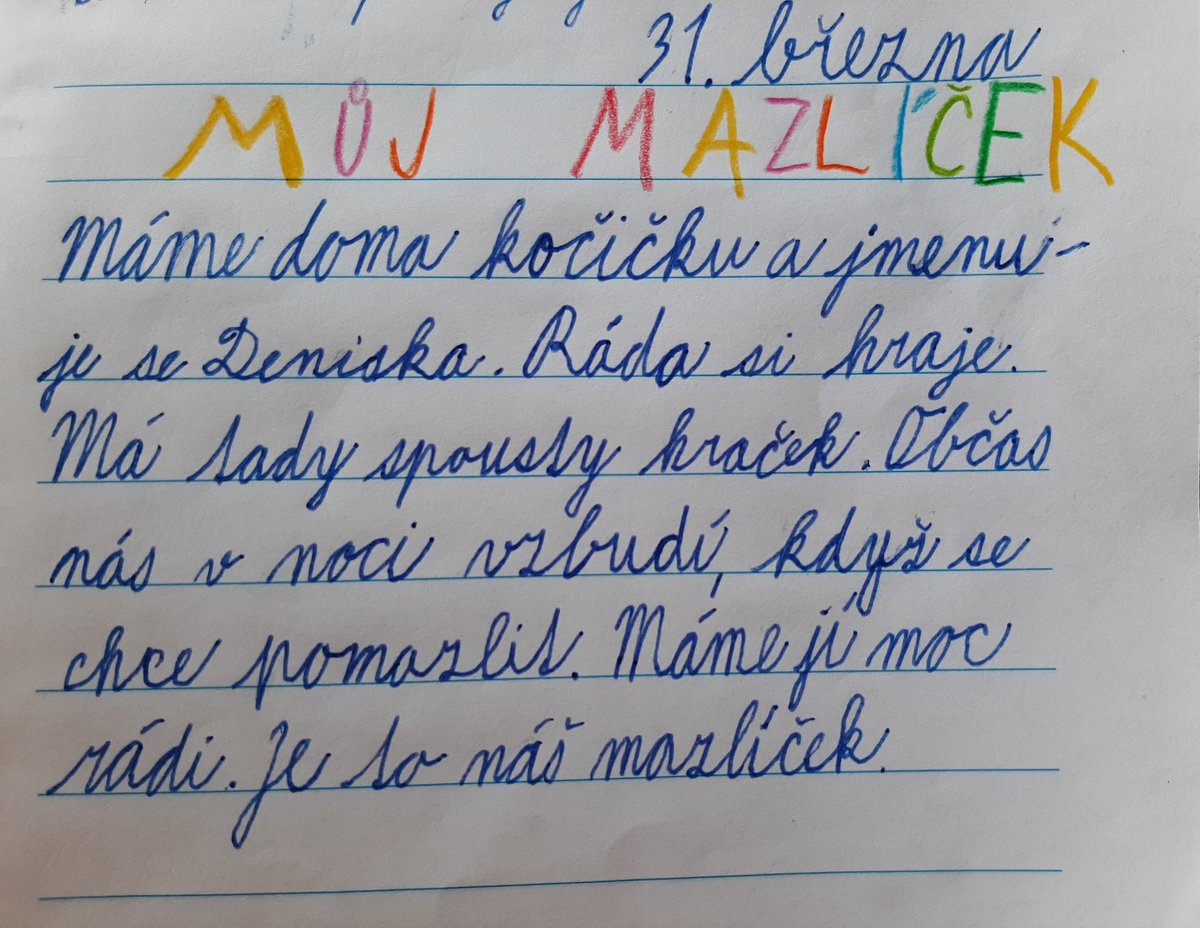 31. března
MŮJ MAZLÍČEK
Máme doma kočičku a jmenu-
je se Deniska. Ráda si hraje.
Má tady spousty hraček. Občas
nás v noci vzbudí, když se
chce pomazlit. Máme jí moc
rádi. Je to náš mazlíček.